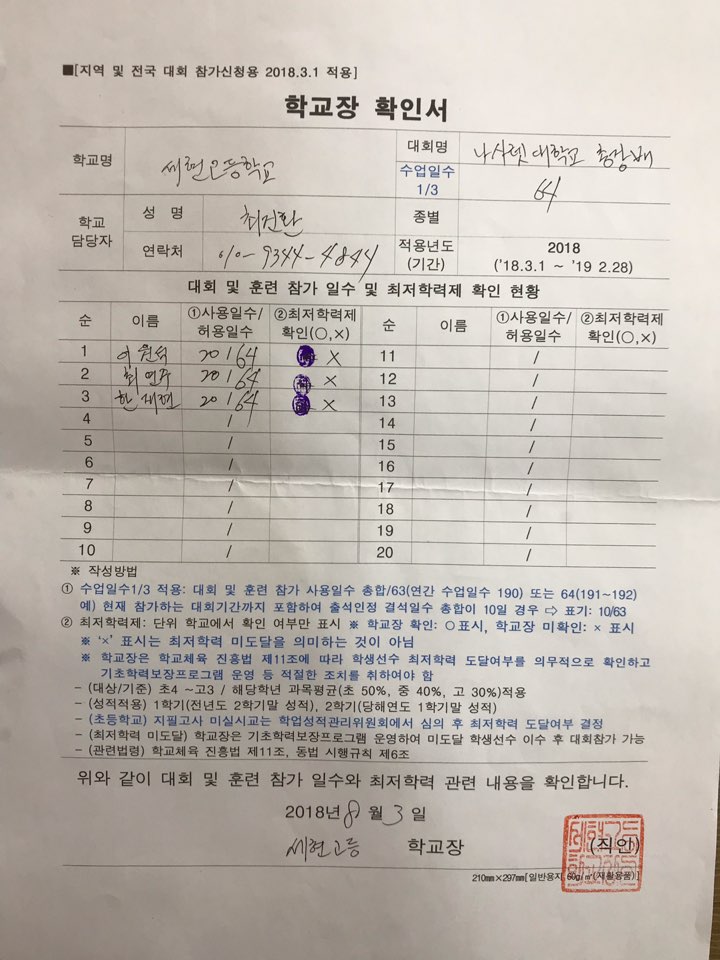 ■[지역 및 전국 대회 참가신청용 2018.3.1 적용]
학교장 확인서
학교명 세현고등학교 대회명 나사렛대학교 총장배
수업일수 1/3 64
학교 담당자 성 명 최진환 종별
연락처 010-9344-4844 적용년도 (기간) 2018 ('18.3.1 ~ '19 2.28)
대회 및 훈련 참가 일수 및 최저학력제 확인 현황
순 이름 ①사용일수/허용일수 ②최저학력제 확인(○,×) 순 이름 ①사용일수/허용일수 ②최저학력제 확인(○,×)
1 이원석 20/64 × 11 /
2 최연주 20/64 × 12 /
3 한재현 20/64 × 13 /
4 / 14 /
5 / 15 /
6 / 16 /
7 / 17 /
8 / 18 /
9 / 19 /
10 / 20 /
※ 작성방법
① 수업일수1/3 적용: 대회 및 훈련 참가 사용일수 총합/63(연간 수업일수 190) 또는 64(191~192)
예) 현재 참가하는 대회기간까지 포함하여 출석인정 결석일수 총합이 10일 경우 ⇨ 표기: 10/63
② 최저학력제: 단위 학교에서 확인 여부만 표시 ※ 학교장 확인: ○표시, 학교장 미확인: × 표시
※ '×' 표시는 최저학력 미도달을 의미하는 것이 아님
※ 학교장은 학교체육 진흥법 제11조에 따라 학생선수 최저학력 도달여부를 의무적으로 확인하고
기초학력보장프로그램 운영 등 적절한 조치를 취하여야 함
- (대상/기준) 초4 ~고3 / 해당학년 과목평균(초 50%, 중 40%, 고 30%)적용
- (성적적용) 1학기(전년도 2학기말 성적), 2학기(당해연도 1학기말 성적)
- (초등학교) 지필고사 미실시교는 학업성적관리위원회에서 심의 후 최저학력 도달여부 결정
- (최저학력 미도달) 학교장은 기초학력보장프로그램 운영하여 미도달 학생선수 이수 후 대회참가 가능
- (관련법령) 학교체육 진흥법 제11조, 동법 시행규칙 제6조
위와 같이 대회 및 훈련 참가 일수와 최저학력 관련 내용을 확인합니다.
2018년 8 월 3 일
세현고등 학교장 (직인)
210㎜×297㎜[일반용지 60g/㎡(재활용품)]